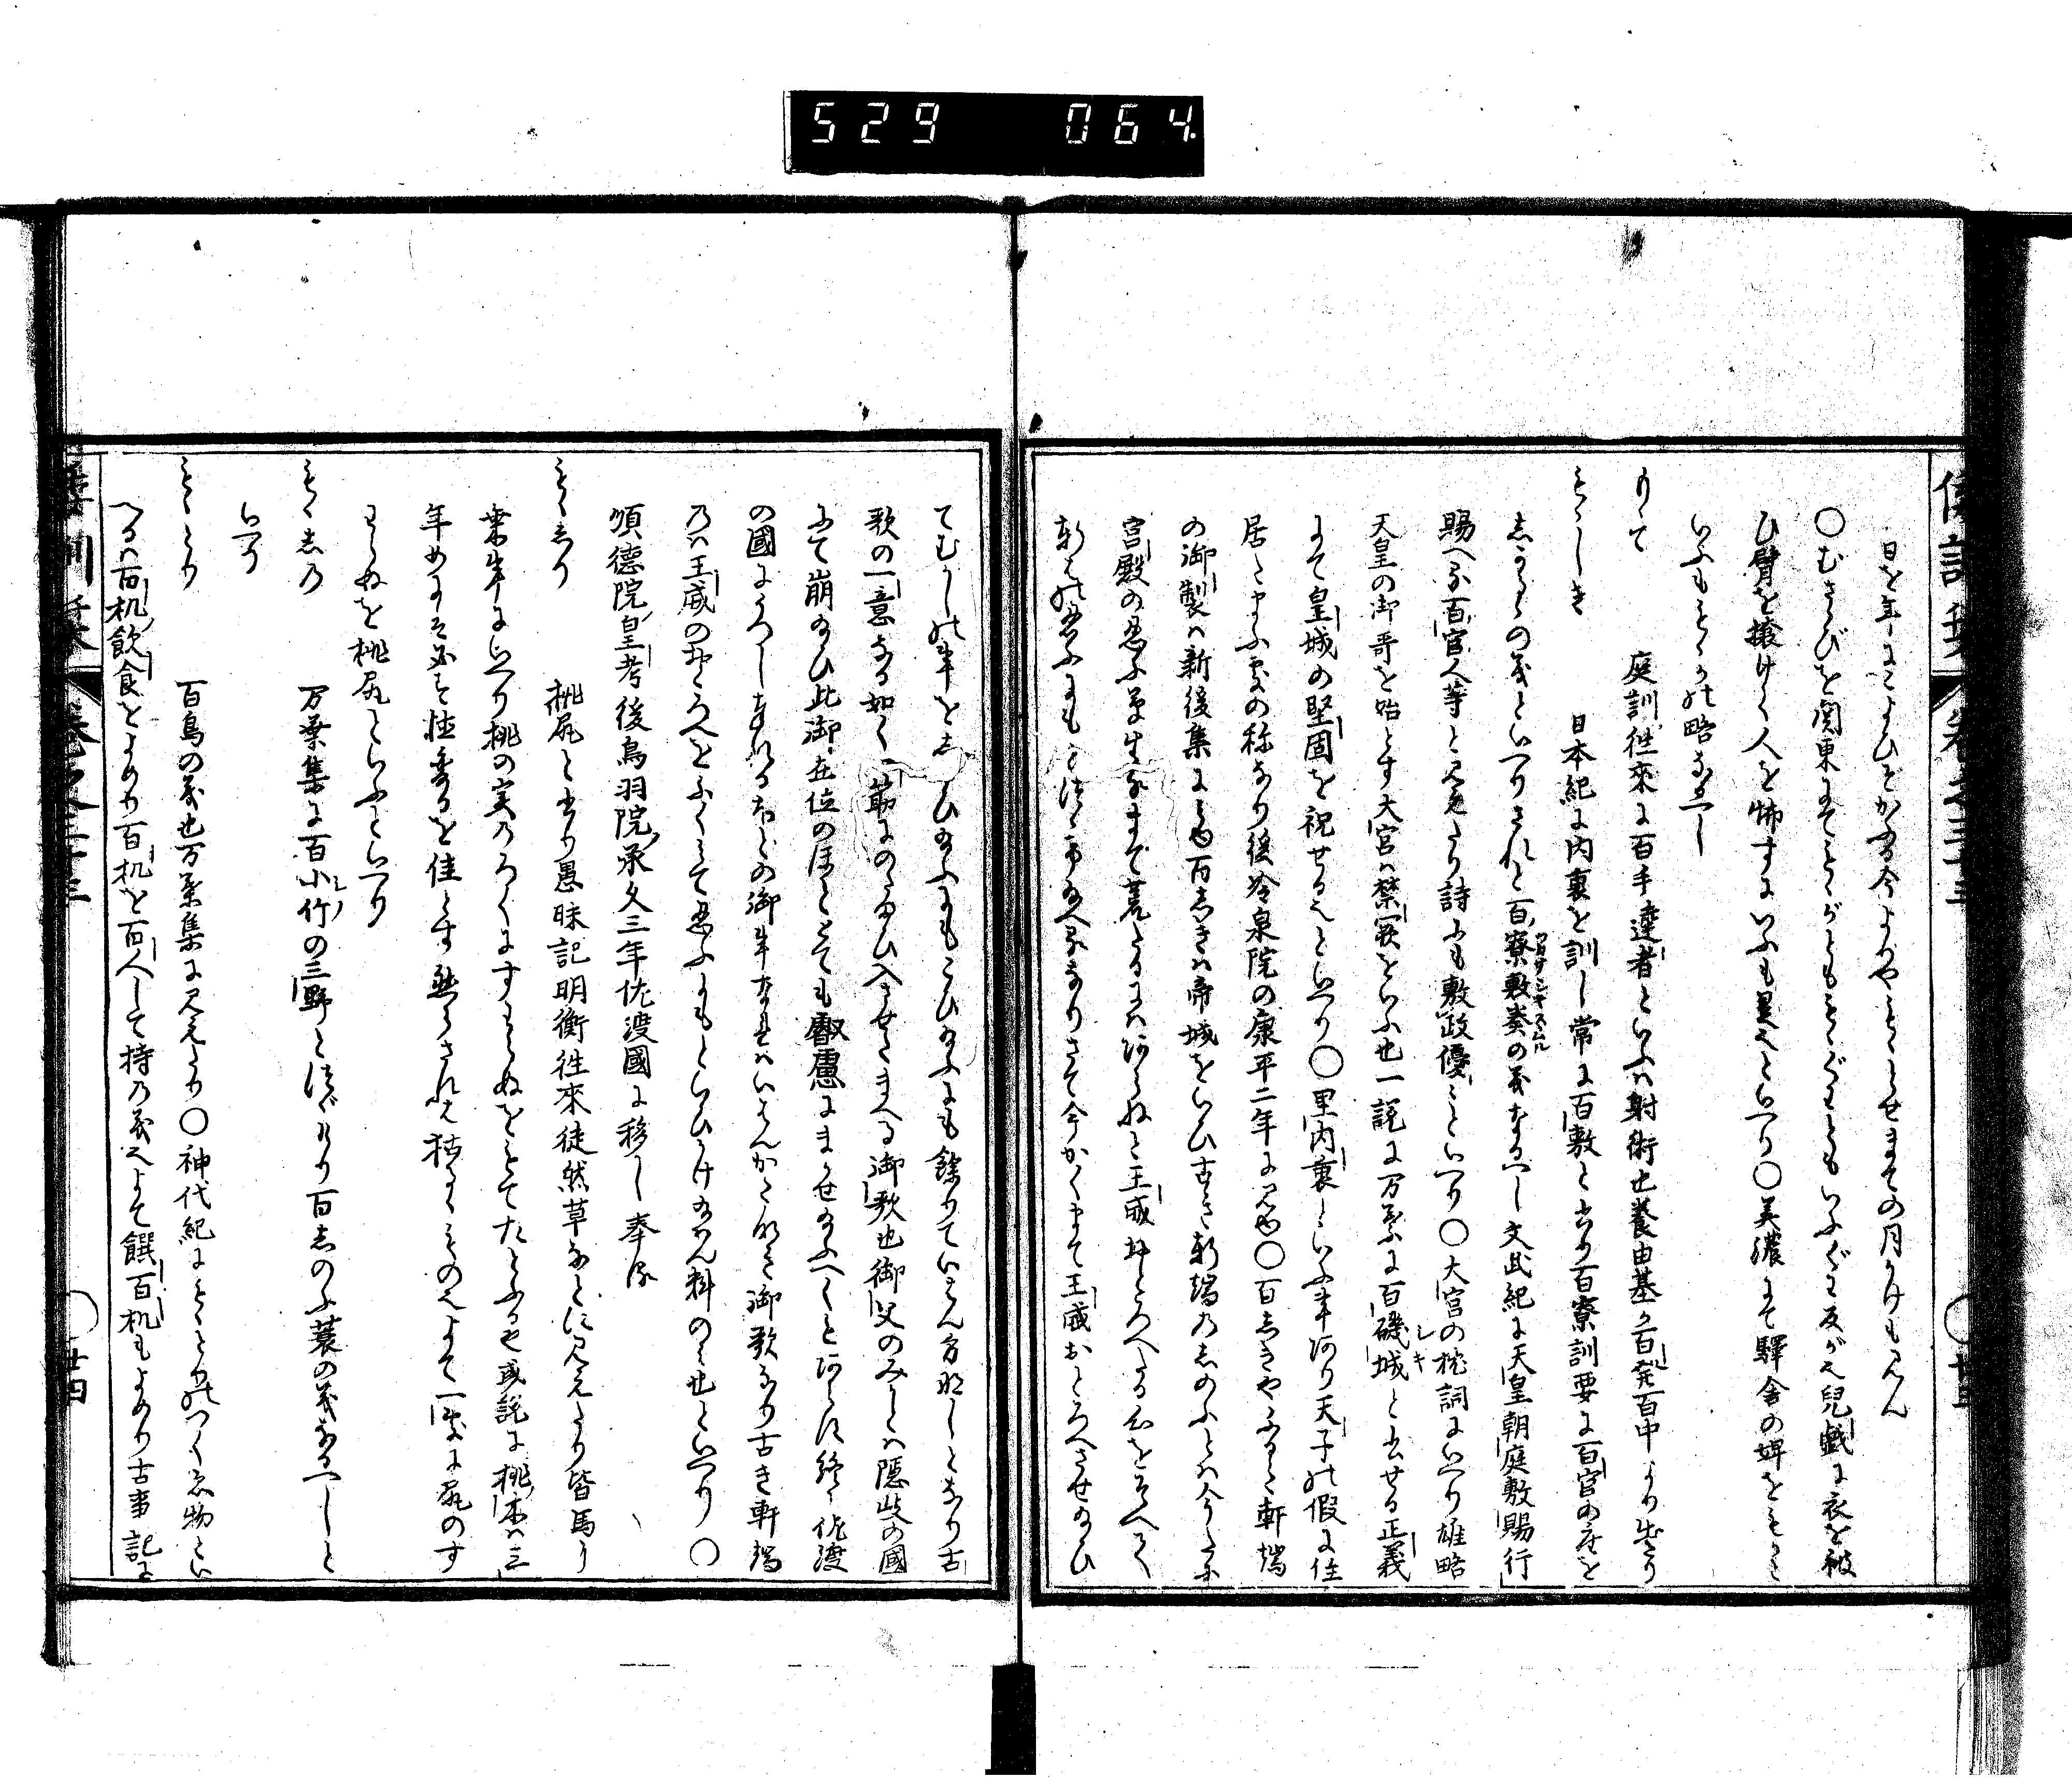 529 064
倭訓栞 巻之三十三
日を年によひとかふる今よりやもゝとせまての月かけもみん
〇むさゝびを関東にてもゝがとももゝぐわともいふぐわ反が也児戯に衣を被
ひ臂を搴けて人を怖すにいふも是也といへり〇美濃にて驛舎の婢をもゝと
いふももゝかの略なるへし
もゝて 庭訓往來に百手達者といふは射術也養由基か百発百中より出たり
もゝしき 日本紀に内裏を訓し常に百敷と書り百寮訓要に百官の座を
しかるの義といへりされと百寮敷奏の義なるへし文武紀に天皇朝庭敷賜行
賜へる百官人等と見えたり詩にも敷政優々といへり〇大宮の枕詞にいへり雄略
天皇の御哥を始とす大宮は禁裏をいふ也一説に万葉に百磯城と書せる正義
にて皇城の堅固を祝せる也といへり〇里内裏といふ事あり天子の假に住
居たまふ處の称なり後冷泉院の康平二年に見ゆ〇百しきやふるき軒端
の御製は新後集に見ゆ百しきは帝城をいひふるき軒端のしのふとは今かた
宮殿の忍ふ草生るまで荒たるにはあらねと王威おとろへたる心をそへて
軒はの忍ふにもとつゝけ給へるなりさて今かくまて王威おとろへさせ給ひ
てむかしの事をしたひ給ふにもこひ給ふにも餘りていはん方なしとなり古
歌の一意なる如く一筋にのたまひ入させたまへる御歌也御父のみかとは隠岐の國
にて崩給ひ此御在位のほとゝても叡慮にまかせ給ふへくとあらす終に佐渡
の國にうつしまゐらするほとの御事なれはいはんかたなき御歌なり古き軒端
乃は王威のおとろへをふくみて忍ふにもといひかけ給はん料のみ也といへり〇
順德院皇考後鳥羽院承久三年佐渡國に移し奉る
もゝしり 桃尻と書り愚昧記明衡往來徒然草なとに見えたり皆馬に
乗事にいへり桃の実のろくにすわらぬをもてたとふる也或説に桃本は三
年めにその実を結るを佳とす
すわらぬを桃尻といふといへり
もゝしの 万葉集に百小竹の三野とつゞけり百しのふ蓑の義なるへしと
いへり
もゝとり 百鳥の義也万葉集に見えたり〇神代紀にもゝとりのつくゑ物とい
へるは百机飲食とよめり百机を百人して持の義也よて饌百机もよめり古事記に
倭訓栞 巻之三十三 〇廿四